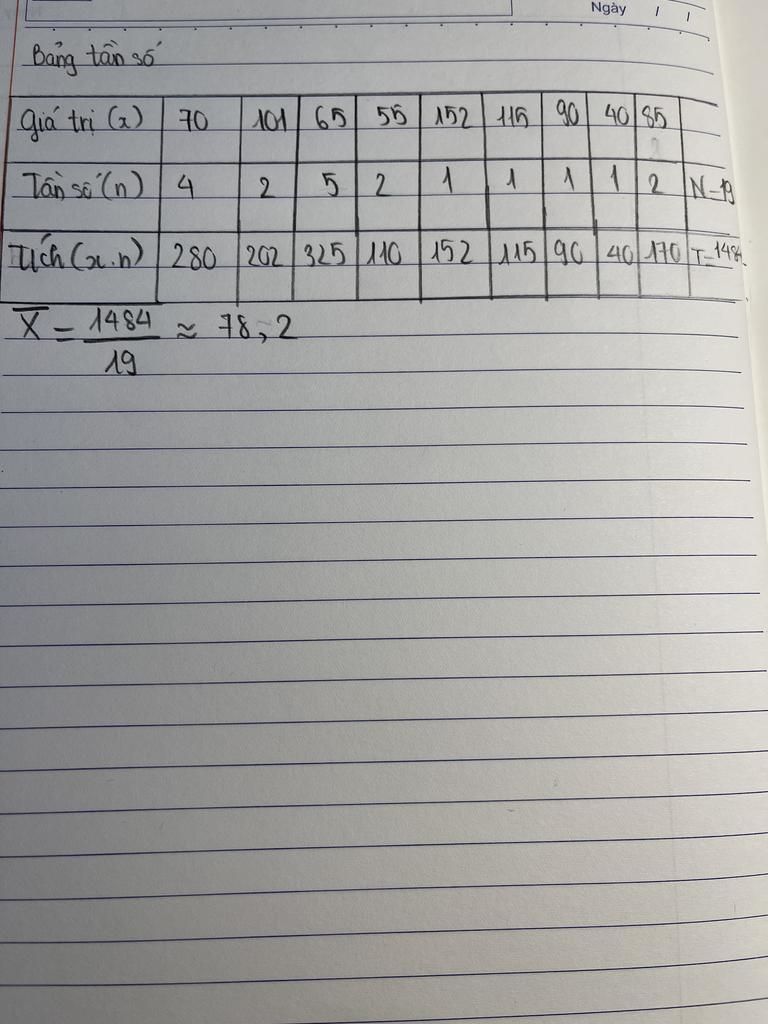 Ngày / /
Bảng tần số
Giá trị (x) 70 101 65 55 152 115 90 40 85
Tần số (n) 4 2 5 2 1 1 1 1 2 N=19
Tích (x.n) 280 202 325 110 152 115 90 40 170 T=1484
X̅ = 1484/19 ≈ 78,2